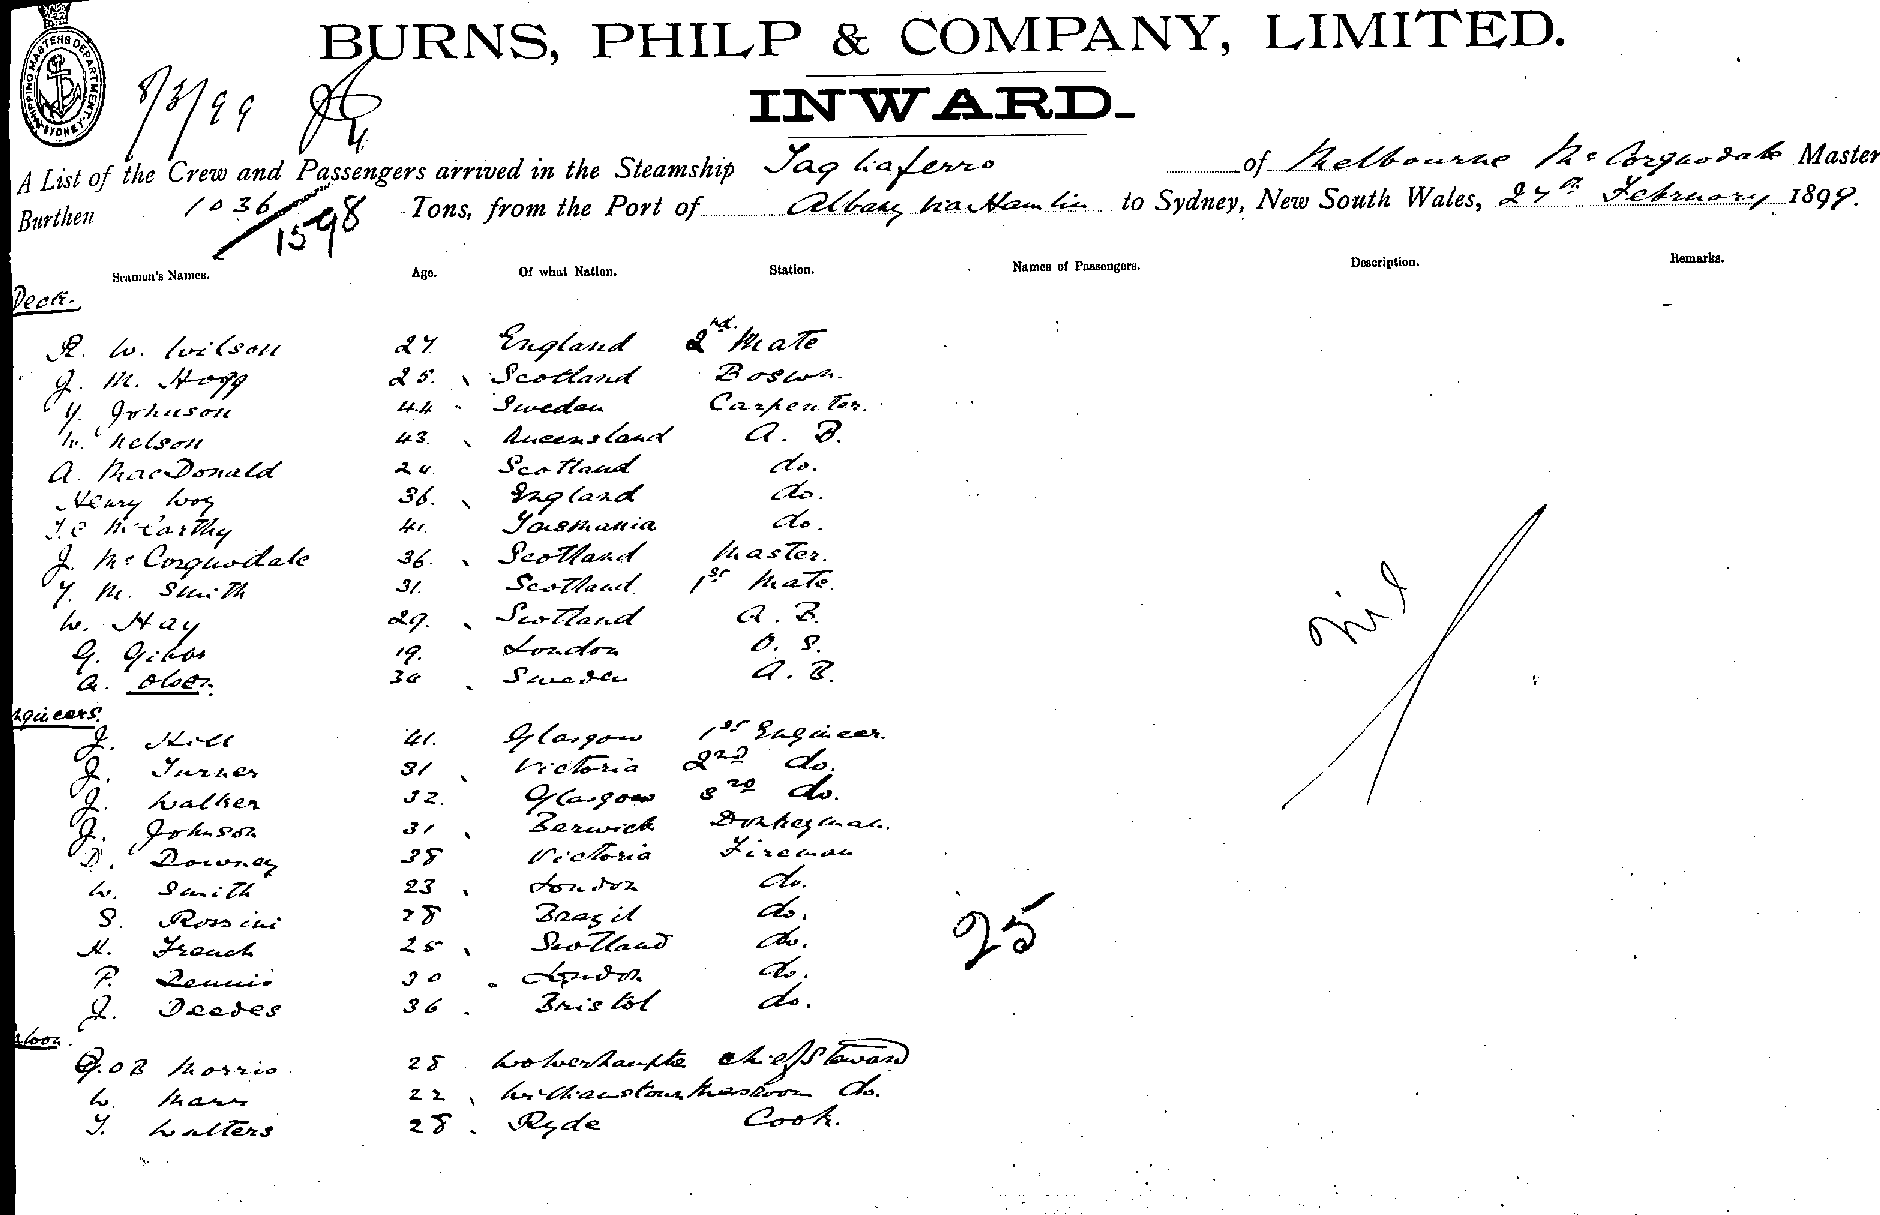 BURNS, PHILP & COMPANY, LIMITED.
SHIPPING MASTERS DEPARTMENT SYDNEY
8/3/99
INWARD.
A List of the Crew and Passengers arrived in the Steamship Tagliaferro of Melbourne McCorquodale Master
Burthen 1036/1598 Tons, from the Port of Albany via Hamlin to Sydney, New South Wales, 27th February 1899.
Seaman's Names. Age. Of what Nation. Station. Names of Passengers. Description. Remarks.
Deck.
R. W. Wilson 27 England 2nd Mate
J. M. Hogg 25. Scotland Boswn.
Y. Johnson 44 Sweden Carpenter.
W. Nelson 43. Queensland A. B.
A. MacDonald 24 Scotland do.
Henry 36. England do.
T. C McCarthy 41. Tasmania do.
J. McCorquodale 36. Scotland Master.
Y. M. Smith 31. Scotland 1st Mate.
W. Hay 29. Scotland A. B.
G. Gibbs 19. London O. S.
A. Olsen 30 Sweden A. B.
Nil
ngineers.
J. Hill 41. Glasgow 1st Engineer.
J. Turner 31 Victoria 2nd do.
J. Walker 32. Glasgow 3rd do.
J. Johnson 31 Berwick Donkeyman.
D. Downey 38 Victoria Fireman
W. Smith 23 London do.
S. Rossini 28 Brazil do.
H. French 25 Scotland do.
25
P. Dennis 30 London do.
J. Deedes 36 Bristol do.
loon.
J. O B Morris 28 Wolverhampte Chief Steward
W. Marr 22 Williamstown Messroom do.
T. Walters 28 Ryde Cook.